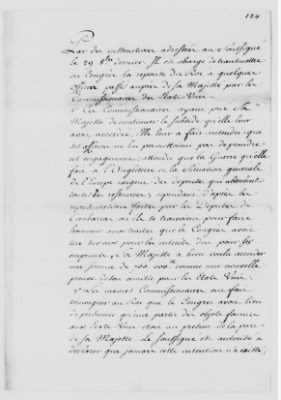 124
Par des instructions adressées au Soussigné
le 29 8bre dernier Il est chargé de transmettre
au Congrès la reponse du Roi à quelques
offices passés auprès de Sa Majesté par les
Commissionaires des Etats Unis.
Ces Commissionaires ayant prié Sa
Majesté de continuer le subside qu'elle leur
avoit accordé, Elle leur a fait entendre que
ses affaires ne lui permettoient pas de prendre
cet engagement, attendu que la Guerre qu'elle
fait à l'Angleterre et la Situation generale
de l'Europe exigent des depenses qui absorbent
toutes les ressources, cependant, d'après les
representations faites par les Deputés de
l'embarras où ils se trouvoient pour faire
honneur aux traites que le Congrès avoit
tirées sur eux pour les interets des
emprunts, Sa Majesté a bien voulu accorder
une somme de 750.000 comme une nouvelle
preuve de son amitié pour les Etats Unis.
Les mêmes Commissionaires ont fait
remarquer au Roi que le Congrès avoit lieu
de presumer qu'une partie des objets fournis
aux Etats Unis étoit un present de la part
de Sa Majesté. Le Soussigné est autorisé à
declarer que jamais cette intention n'a existé,